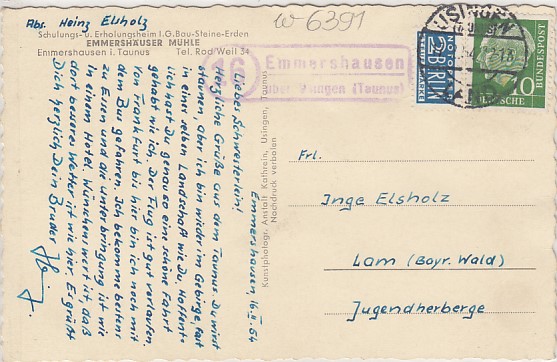 Abs. Heinz Elsholz
Schulungs- u. Erholungsheim I.G. Bau-Steine-Erden
EMMERSHÄUSER MÜHLE
Emmershausen i. Taunus Tel. Rod/Weil 34
w 6391
16
Emmershausen
über Usingen (Taunus)
USINGEN
NOTOPFER
2 BERLIN
STEUERMARKE
DEUTSCHE BUNDESPOST
10
Emmershausen 16. II. 54
Liebes Schwesterlein!
Herzliche Grüße aus dem Taunus. Du wirst
staunen, aber ich bin wieder im Gebirge, fast
in einer selben Landschaft wie Du. Hoffent-
lich hast Du genauso eine schöne Fahrt
gehabt wie ich. Der Flug ist gut verlaufen
Von Frankfurt bis hier bin ich noch mit
dem Bus gefahren. Ich bekomme bestens
zu Essen und die Unterbringung ist wie
in einem Hotel. Wünschenswert ist, daß
dort besseres Wetter ist wie hier. Es grüßt
Dich herzlich Dein Bruder
Kunstphotogr. Anstalt Kathrein, Usingen, Taunus
Nachdruck verboten
Frl.
Inge Elsholz
Lam (Bayr. Wald)
Jugendherberge